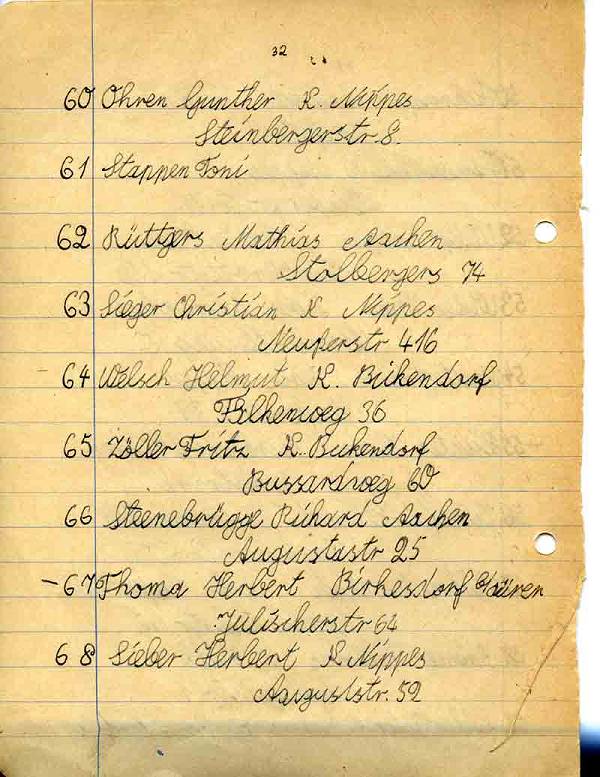 32
60 Ohren Gunther K. Nippes
Steinbergerstr. 8.
61 Stappen Toni
62 Rüttgers Mathias Aachen
Stolbergers 74
63 Sieger Christian K Nippes
Neußerstr 416
64 Welsch Helmut K. Bickendorf
Falkenweg 36
65 Zöller Fritz K. Bickendorf
Bussardweg 60
66 Steenebrügge Richard Aachen
Augustastr 25
- 67 Thoma Herbert Birkesdorf
Jülischerstr 64
68 Sieber Herbert K Nippes
Auguststr. 52